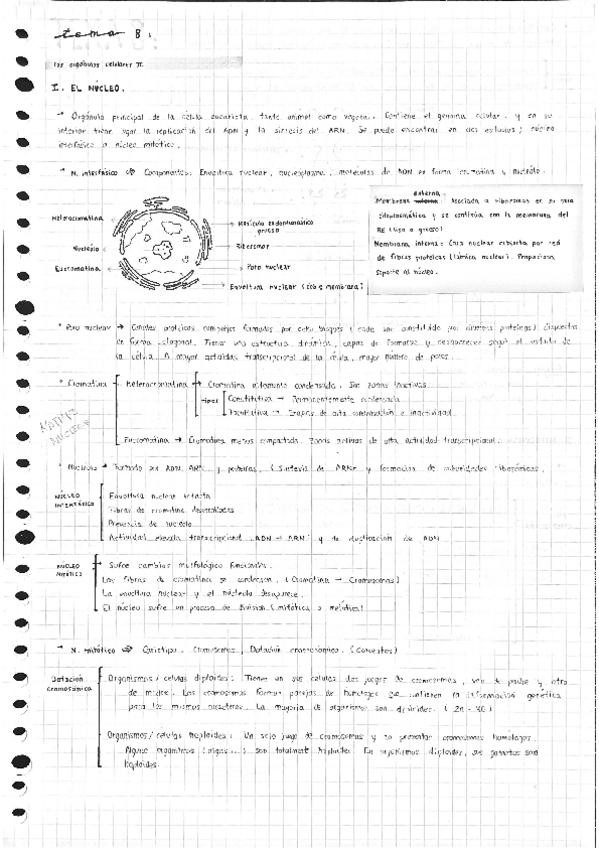 tema 8.
Los orgánulos celulares II.
I. EL NÚCLEO.
→ Orgánulo principal de la célula eucariota, tanto animal como vegetal. Contiene el genoma celular, y en su
interior tiene lugar la replicación del ADN y la síntesis del ARN. Se puede encontrar en dos estados: núcleo
interfásico o núcleo mitótico.
* N. interfásico ⇒ Componentes: Envoltura nuclear, nucleoplasma, moléculas de ADN en forma cromatina y nucleolo.
Heterocromatina
Nucleolo
Eucromatina
Retículo endoplasmático
grueso
Ribosomas
Poro nuclear
Envoltura nuclear (doble membrana)
externa
Membrana interna: Asociada a ribosomas en su cara
citoplasmática y se continúa con la membrana del
RE (liso o grueso)
Membrana interna: Cara nuclear cubierta por red
de fibras proteicas (lámina nuclear). Proporciona
soporte al núcleo.
* Poro nuclear → Canales proteicos complejos formados por ocho bloques (cada uno constituido por diversas proteínas) dispuestos
en forma octogonal. Tienen una estructura dinámica, capaces de formarse y desaparecer según el estado de
la célula. A mayor actividad transcripcional de la célula, mayor número de poros.
* Cromatina
Heterocromatina → Cromatina altamente condensada. Son zonas inactivas.
Tipos
Constitutiva → Permanentemente condensada
Facultativa → Etapas de alta condensación e inactividad.
Eucromatina → Cromatina menos compactada. Zonas activas de alta actividad transcripcional.
MATRIZ
NUCLEAR
* Nucleolo → Formado por ADN, ARN y proteínas. (Síntesis de ARNr y formación de subunidades ribosómicas.
NÚCLEO
INTERFÁSICO
Envoltura nuclear intacta
Fibras de cromatina descondensadas
Presencia de nucleolo
Actividad elevada transcripcional (ADN → ARN) y de duplicación de ADN
NÚCLEO
MITÓTICO
Sufre cambios morfológico funcionales.
Las fibras de cromatina se condensan. (Cromatina → Cromosomas)
La envoltura nuclear y el nucleolo desaparece.
El núcleo sufre un proceso de división (mitótica o meiótica)
* N. mitótico ⇒ Cariotipo. Cromosomas. Dotación cromosómica. (Conceptos)
Dotación
cromosómica
Organismos / células diploides: Tiene en sus células dos juegos de cromosomas, uno de padre y otro
de madre. Los cromosomas forman parejas de homólogos que contienen la información genética
para los mismos caracteres. La mayoría de organismos son diploides. (2n
Organismos / células haploides: Un solo juego de cromosomas y no presentan cromosomas homólogos.
Algunos organismos (algas...) son totalment haploides. En organismos diploides, sus gametos son
haploides.